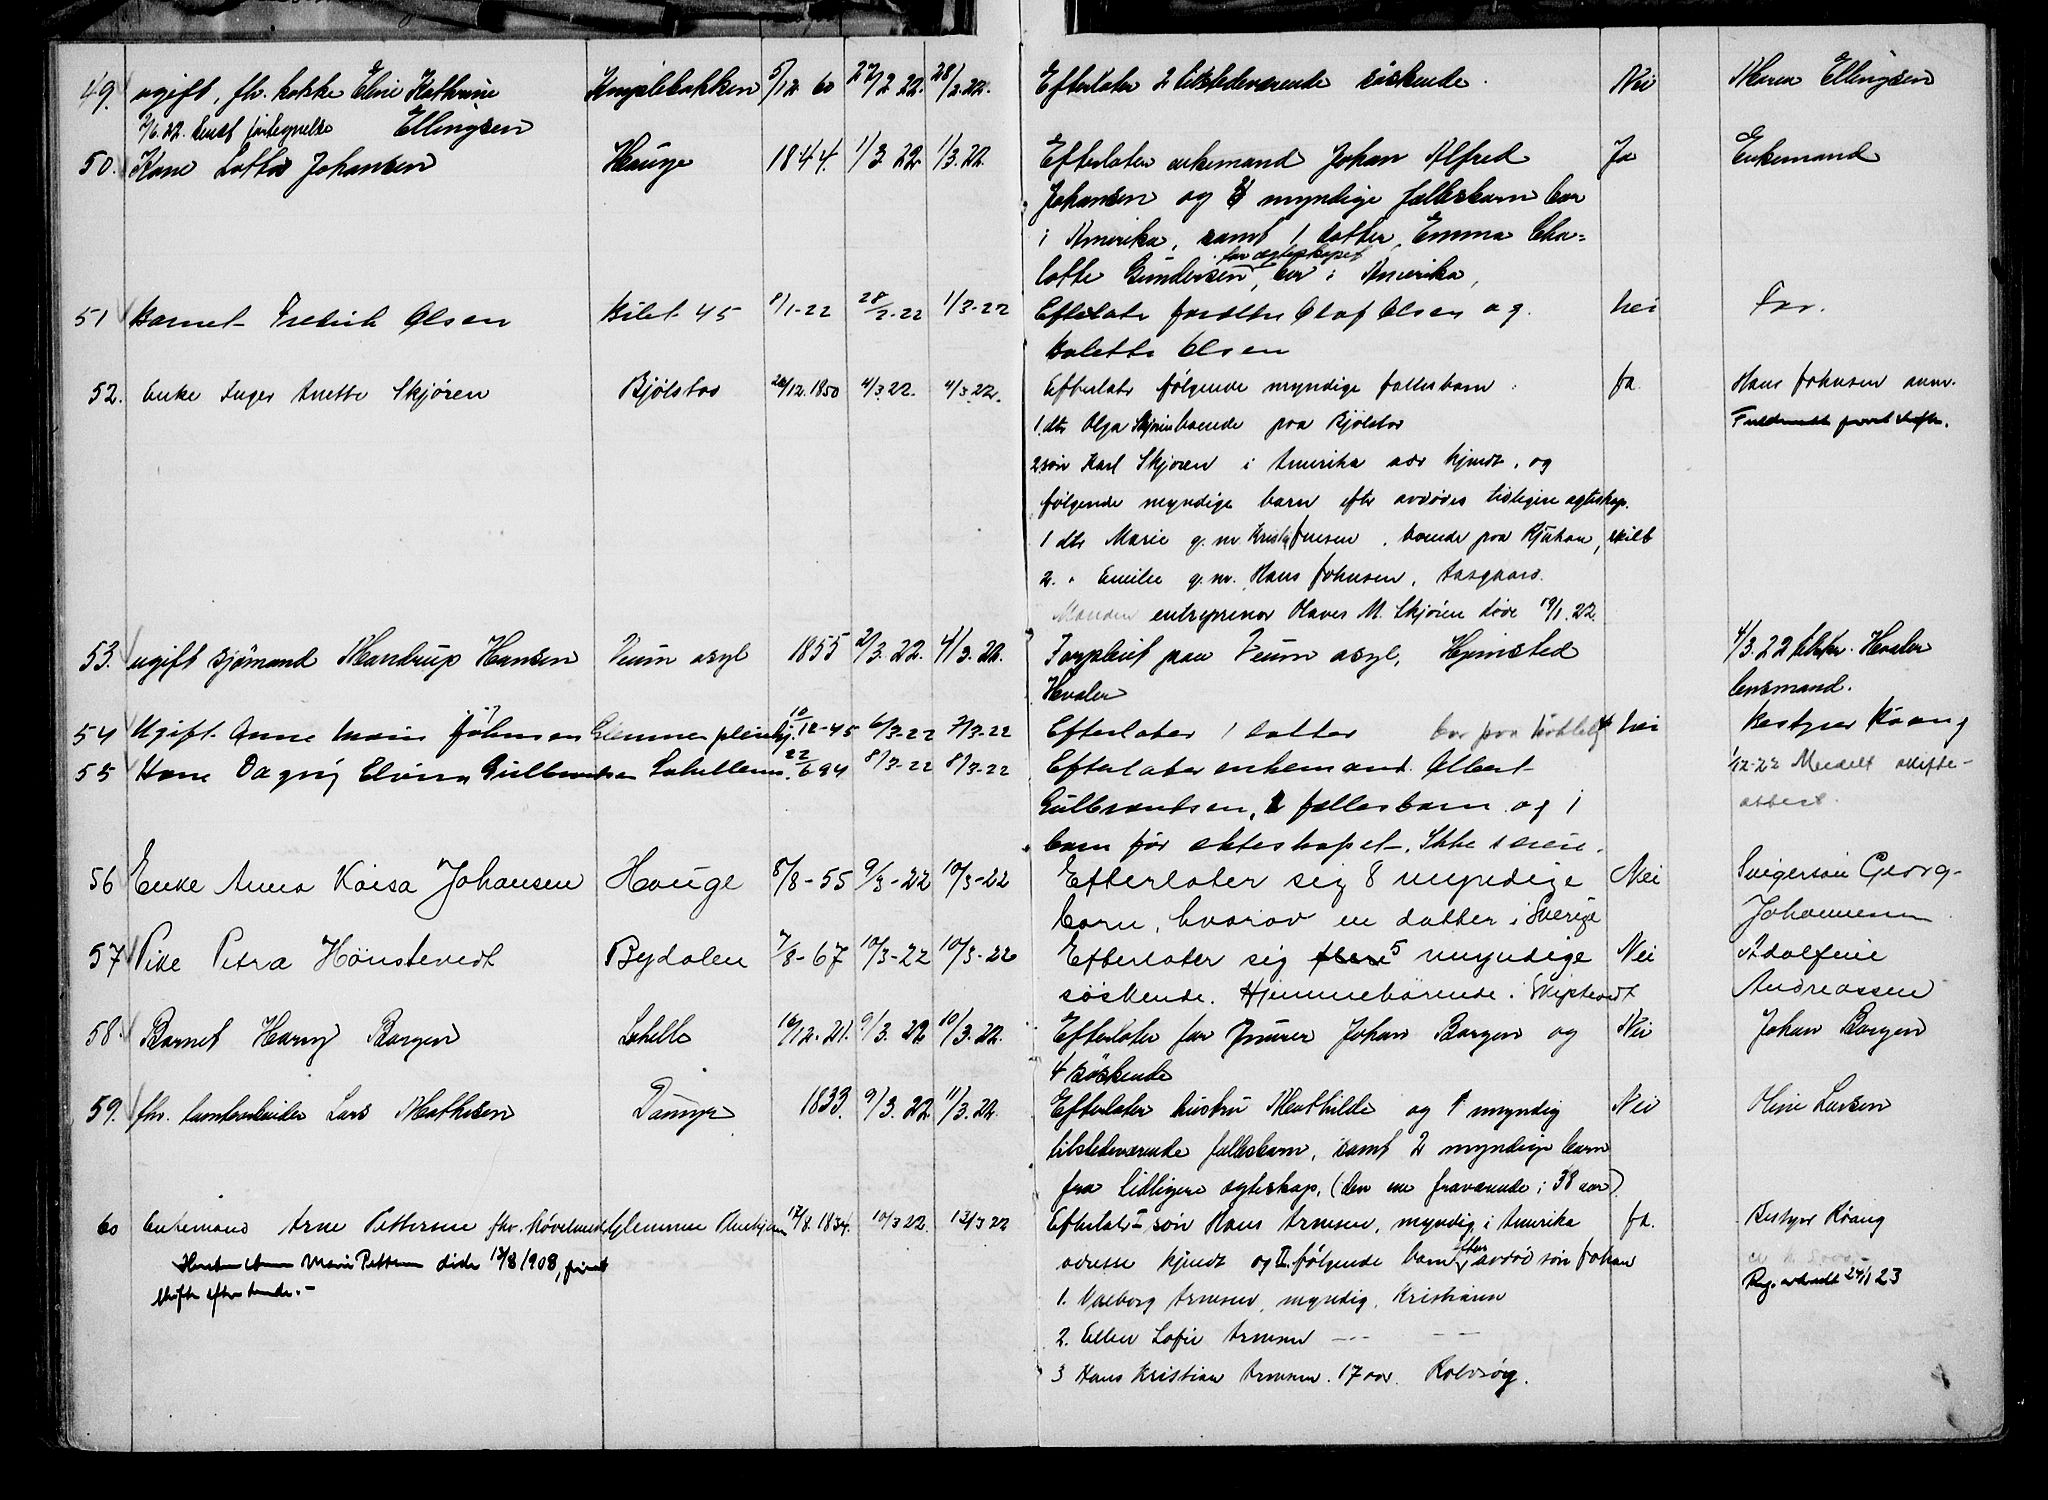 49. ugift, fh. kokke Elvie Kathrine Kniplebakken 5/12 60 27/2 22. 28/2. 22. Efterlater 2 tilstedeværende søskende. Nei Maren Ellingsen
2/6.22. sendt fortegnelse Ellingsen
50. Kone Lotta Johansen Hauge 1844. 1/3 22 1/3. 22. Efterlater enkemand Johan Alfred Ja Enkemand
Johansen og myndige fællesbarn bor
i Amerika, samt 1 datter Emma Cha=
før egteskapet
lotte Gundersen, bor i Amerika,
51 Barnet Fredrik Olsen Bilet 45 8/1-22 28/2-22 1/3-22 Efterlater forældre Olaf Olsen og nei Far.
Bolette Olsen
52. Enke Inger Anette Skjøren Bjølstad 26/12.1850 4/3.22. 4/3.22. Efterlater følgende myndige fællesbarn: ja. Hans Johnsen anm.
1. dtr Olga Skjøren boende paa Bjølstad
2 søn Karl Skjøren i Amerika adr kjendt, og
følgende myndige barn efter avdødes tidligere egteskap.
1 dtr Marie g. m. Kristof Jensen, boende paa Rjukan, skilt
2. " Emilie g. m. Hans Johnsen, Aasgaard.
Manden entreprenør Olaves M. Skjøren døde 19/1.22.
53. ugift sjømand Mandrup Hansen Veum asyl 1855 2/3. 22. 4/3. 22. Forpleiet paa Veum asyl, Hjemsted 4/3.22 tilskr. Hvaler
Hvaler lensmand.
54 Ugift Anne Marie Johnsen Glemmen pleiehj. 10/12-45 6/3-22 7/3-22 Efterlater 1 datter bor paa nei Bestyrer Kaang
55 Kone Dagny Elvira Gulbrandsen Lahellen. 22/6 94 8/3-22 8/3-22 Efterlater enkemand Albert 1/12-22 Meddelt skifte-
Gulbrandsen, 2 fællesbarn og 1 attest.
barn før ekteskapet. Ikke seme.
56 Enke Anna Kaisa Johansen Hauge 8/8-55 9/3-22 10/3-22 Efterlater sig 8 myndige Nei Svigersøn Georg
barn, hvorav en datter i Sverige Johannesen
57 Pike Petra Hønstevedt Bydalen 7/8-67 10/3-22 10/3-22 Efterlater sig flere 5 myndige Nei Adolfine
søskende. Hjemmehørende i Skiptvedt Andreassen
58. Barnet Harry Borgen Lahelle 16/12.21. 9/3. 22 10/3.22. Efterlater far Murer Johan Borgen og Nei Johan Borgen
4 søskende
59. fhv. tomtearbeider Lars Mathisen Damyr 1833. 9/3. 22. 11/3. 22. Efterlater hustru Mathilde og 1 myndig Nei Oline Larsen
tilstedeværende fællesbarn, samt 2 myndige barn
fra tidligere egteskap, (den ene fraværende i 38 aar)
60 Enkemand Arne Pettersen fhv. høvelmester Glemmen Pleiehjem 12/8.1834. 10/3 22. 13/3 22 Efterlater I søn Hans Arnesen, myndig i Amerika ja. Bestyrer Kaang
Hustru Anna Marie Pettersen døde 13/8 1908, privat adresse kjendt og II. følgende barn efter avdød søn Johan
skifte efter hende.- 1. Valborg Arnesen, myndig, Kristiania Reg. avsendt 24/1 23
2. Ellen Sofie Arnesen --- ---
3 Hans Kristian Arnesen. 17 aar. Rolvsøy.